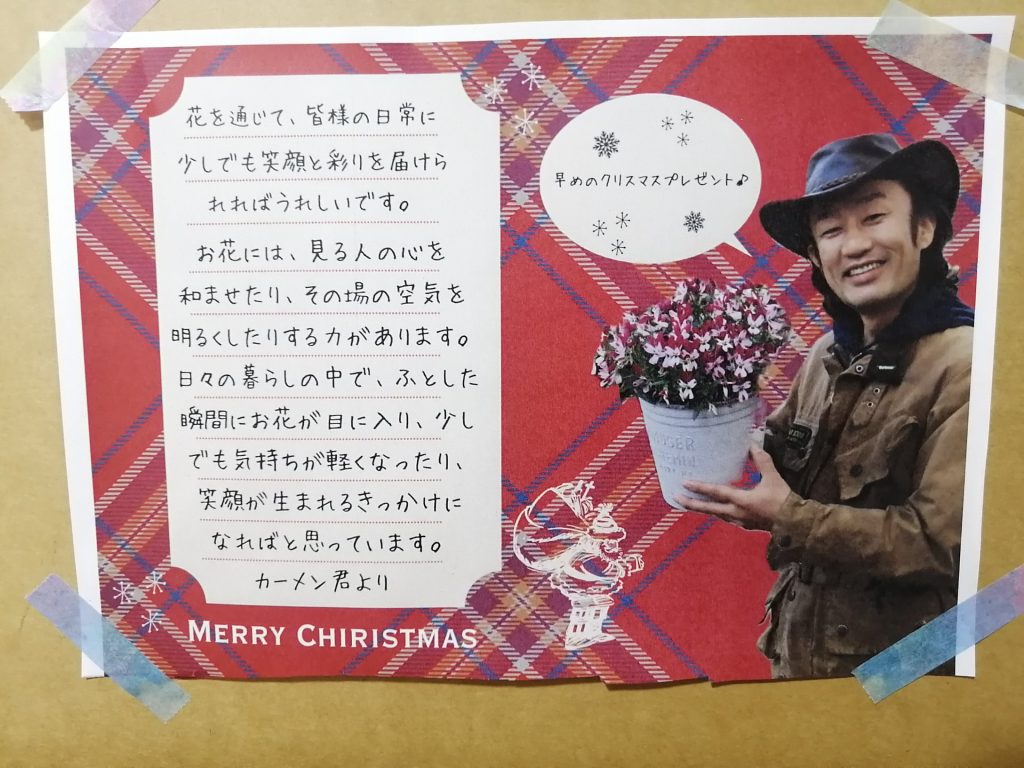 花を通じて、皆様の日常に
少しでも笑顔と彩りを届けら
れればうれしいです。
お花には、見る人の心を
和ませたり、その場の空気を
明るくしたりする力があります。
日々の暮らしの中で、ふとした
瞬間にお花が目に入り、少し
でも気持ちが軽くなったり、
笑顔が生まれるきっかけに
なればと思っています。
カーメン君より
MERRY CHIRISTMAS
早めのクリスマスプレゼント♪
Barbour